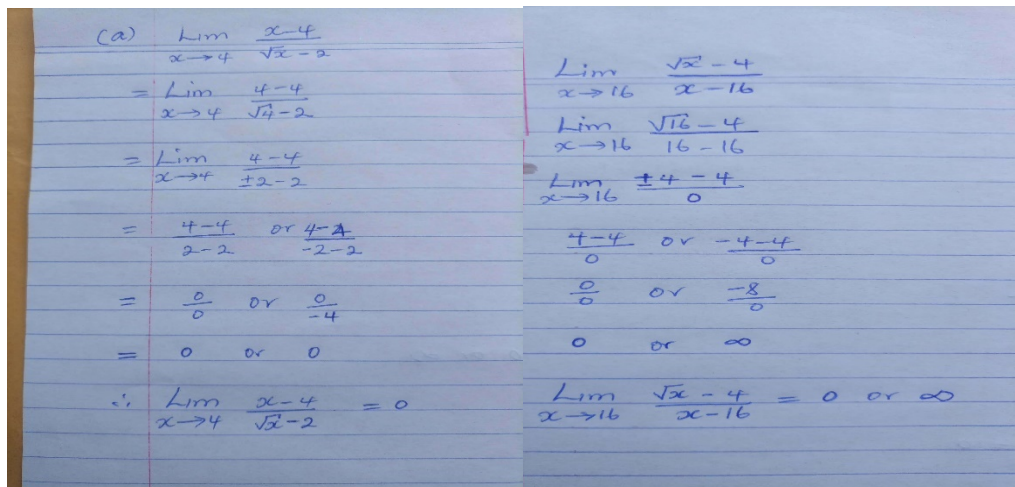 (a) Lim x→4 x-4/√x-2
= Lim x→4 4-4/√4-2
= Lim x→4 4-4/±2-2
= 4-4/2-2 or 4-4/-2-2
= 0/0 or 0/-4
= 0 or 0
∴ Lim x→4 x-4/√x-2 = 0
Lim x→16 √x-4/x-16
Lim x→16 √16-4/16-16
Lim x→16 ±4-4/0
4-4/0 or -4-4/0
0/0 or -8/0
0 or ∞
Lim x→16 √x-4/x-16 = 0 or ∞